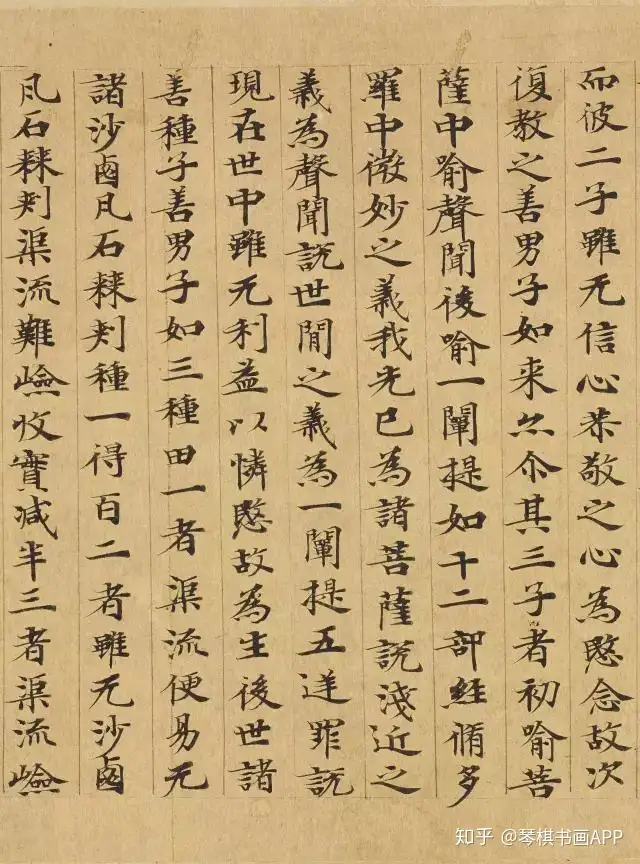 而彼二子雖无信心恭敬之心為愍念故次
復教之善男子如来亦尒其三子者初喻菩
薩中喻聲聞後喻一闡提如十二部経脩多
羅中微妙之義我先已為諸菩薩說淺近之
義為聲聞說世間之義為一闡提五逆罪說
現在世中雖无利益以憐愍故為生後世諸
善種子善男子如三種田一者渠流便易无
諸沙鹵凡石棘刺種一得百二者雖无沙鹵
凡石棘刺渠流難嶮收實減半三者渠流嶮
知乎 @琴棋书画APP